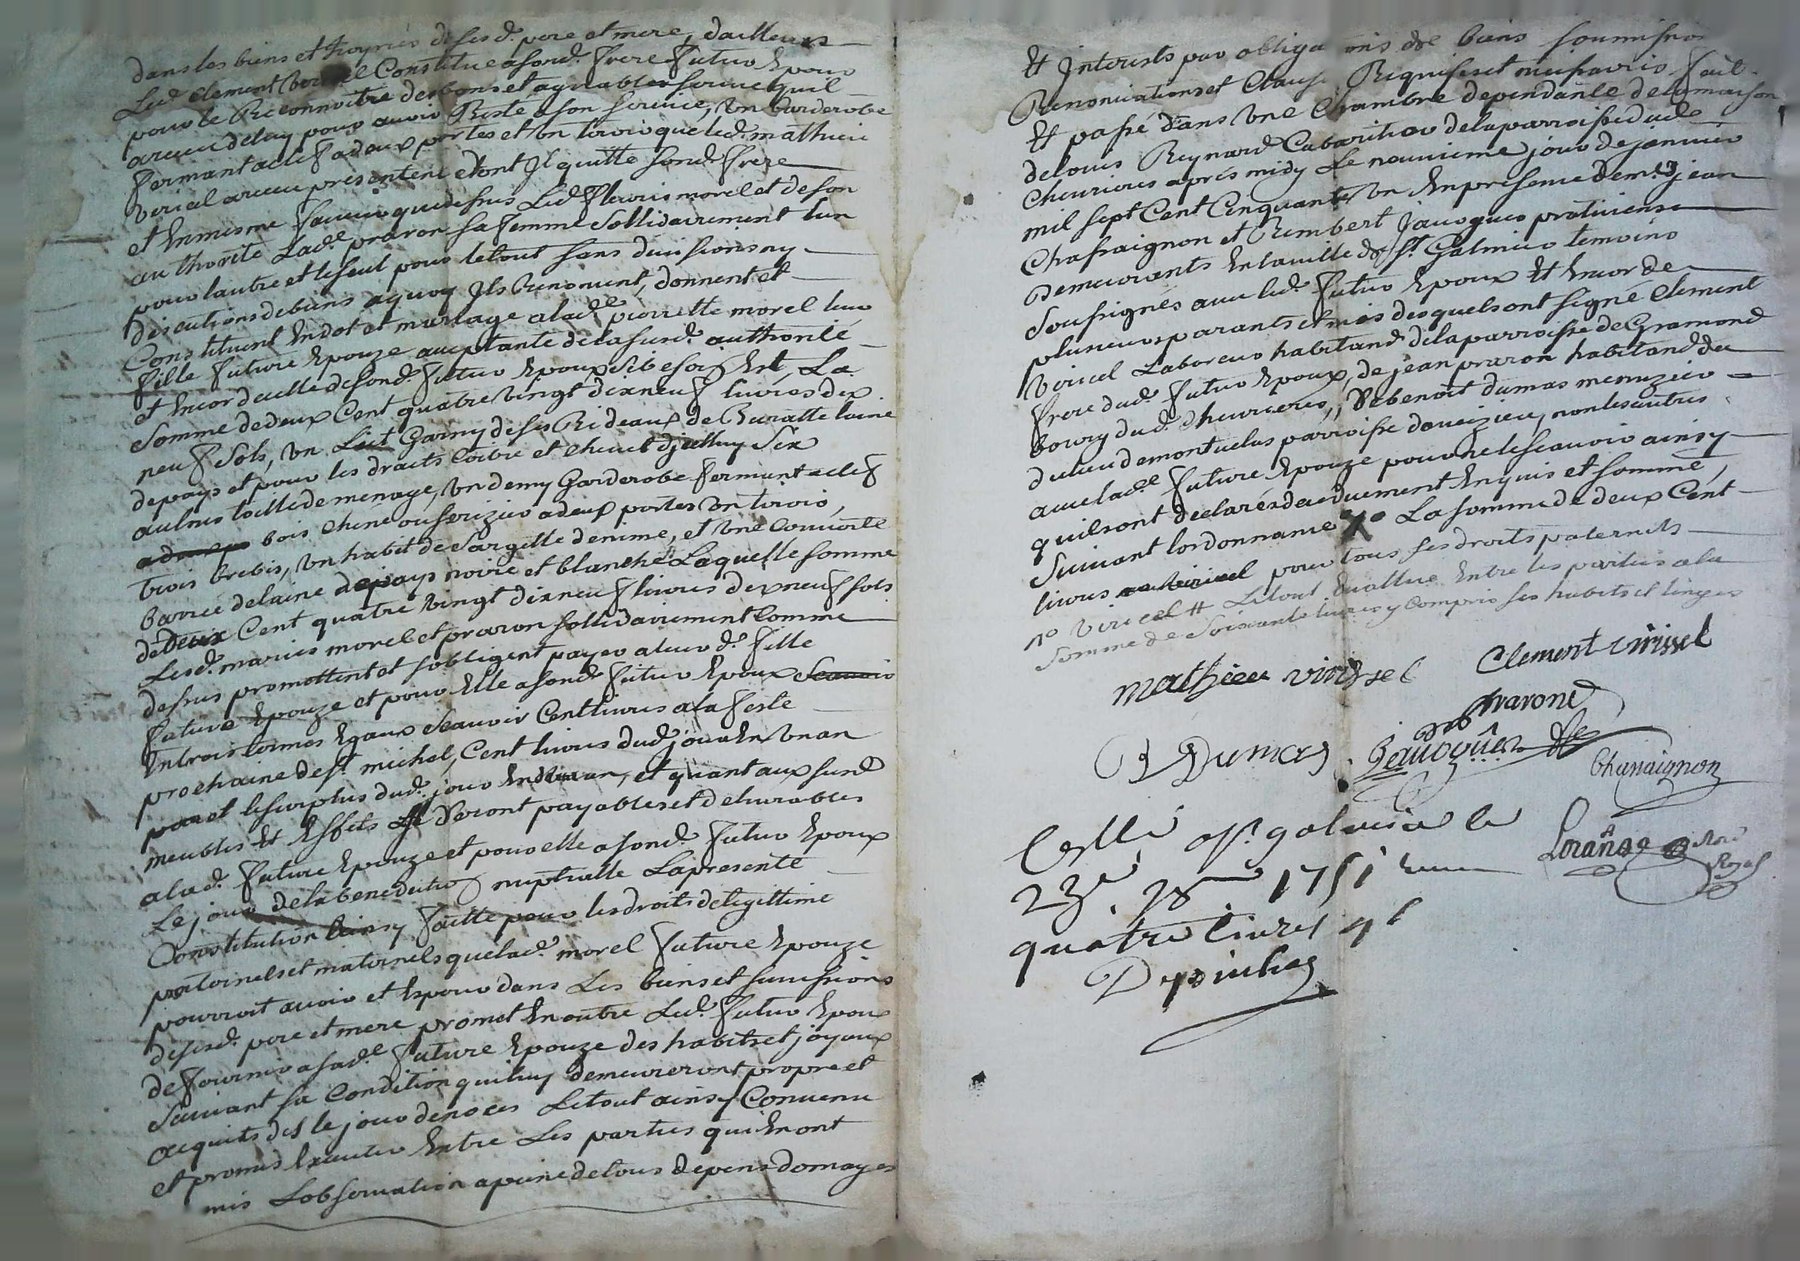 dans les biens et hoyries de sesd. pere et mere, dailleurs
Led. Clement Viricel Constitue a sond. frere futur Epoux
pour le Reconnoitre des bons et agreables service quil
a receu de luy pour avoir Resté a son service, Un Garderobe
fermant a clef a deux portes et Un tiroir que led. mathieu
Viricel a receu presentement dont Il quitte sond. frere
et En mesme faveur que dessus Led. fleuris morel et de son
authorité Lad.e praron sa femme Sollidairement lun
pour lautre et le seul pour le tout sans divisions ny
discutions de biens a quoy Ils Renoncent, donnent et
Constituent En dot et mariage a lad.e pierrette morel leur
fille future Epouze acceptante de la susd.e authorité
et Encor de celle de sond. futur Epoux Si besoin Est, La
Somme de deux Cent quatre Vingt dix neuf livres dix
neuf Sols, Un Lit Garny de ses Rideaux de Buratte laine
de pays et pour les draits Coitre et Chevet d'jcelluy Six
aulnes toille de menage, Un demy Garderobe fermant a clef
bois Chene ou serizier a deux portes Un tiroir,
trois brebis, Un habit de Sargette de nime, et Une Couverte
barrée de laine de pays noire et blanche Laquelle somme
de Deux Cent quatre Vingt dix neuf livres dix neuf sols
Lesd. mariés morel et praron sollidairement Comme
dessus promettent et sobligent payer a leurd. fille
future Epouze et pour Elle a sond. futur Epoux Scavoir
En trois termes Egaux Scavoir Cent livres a la feste
prochaine de st michel, Cent livres dud. jour En Un an
et le surplus dud. jour En Un an, et quant aux susd.
meubles et Effets Ils Seront payables et delivrables
a lad.e future Epouze et pour elle a sond. futur Epoux
Le jour de la benediction nuptialle La presente
Constitution ainsy faitte pour les droits de legittime
paternels et maternels que lad.e morel future Epouze
pourroit avoir et Espour dans Les biens et successions
de sesd. pere et mere promet En outre Led. futur Epoux
de fournir a sad.e future Epouze des habits et joyaux
Suivant sa Condition qui luy demeureront propre et
acquits des le jour de noces Le tout ainsy Convenu
et promis Executer Entre Les parties qui En ont
mis Lobservation a peine de tous depens domages
Et Interests par obligations de biens soumissions
Renonciations et Clauses Requises et necessaires fait
Et passé dans Une Chambre dependante de la maison
de louis Reynard Cabaritier de la parroisse dud.
Chevrieres apres midy Le neuvieme jour de janvier
mil sept Cent Cinquante Un En presence de m.es jean
Chassaignon et Rimbert Jacogues praticiens
Demeurants En la ville de st Galmier temoins
Soussignés avec led. futur Epoux Et Encor de
plusieurs parants et amis desquels ont signé Clement
Viricel Laboreur habitand de la parroisse de Gramond
frere dud. futur Epoux, de jean praron habitand du
bourg dud. Chevrieres, De benoit dumas menuzier
du lieu de montuclas parroisse daveizieu, non les autres
avec lad.e future Epouze pour ne le scavoir ainsy
quils ont declarés de ce deuement Enquis et sommé,
Suivant lordonnance La somme de deux Cent
livres pour tous ses droits paternels
Viricel # Le tout Evallué Entre les parties a la
Somme de Soixante livres y Compris ses habits et linges
mathieu viricel Clement virissel
praront
B Dumas Jacogues
Chassaignon
Conllé a st galmier le
23e 1751
quatre livres
Lorange No.re
Royal
Depinhac